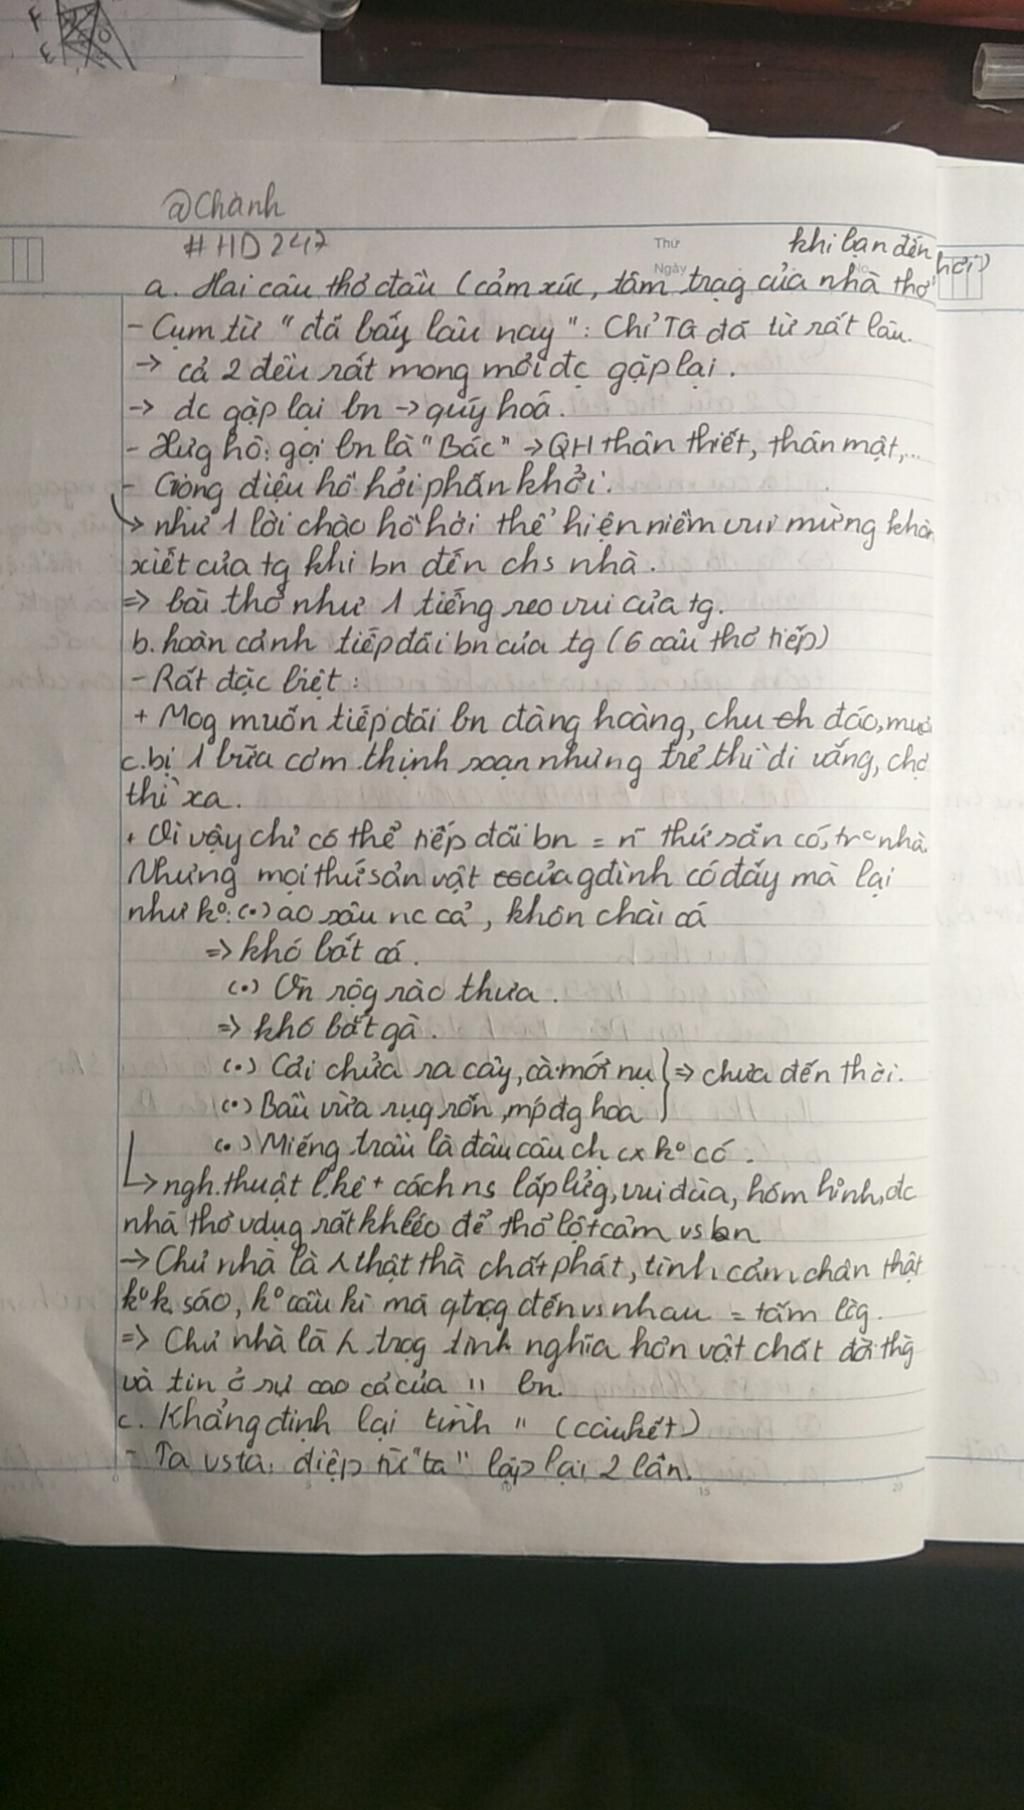 F
E
@Chành
#HD247
Thứ
Ngày
khi bạn đến
chơi)
a. Hai câu thơ đầu (cảm xúc, tâm trạg của nhà thơ
- Cụm từ "đã bấy lâu nay": Chỉ TG đã từ rất lâu.
→ cả 2 đều rất mong mỏi đc gặp lại.
→ đc gặp lại bn → quý hoá.
- Xưg hô: gọi bn là "Bác" → QH thân thiết, thân mật,...
- Giọng điệu hồ hởi phấn khởi.
→ như 1 lời chào hồ hởi thể hiện niềm vui mừng khôn
xiết của tg khi bn đến chs nhà.
⇒ bài thơ như 1 tiếng reo vui của tg.
b. hoàn cảnh tiếp đãi bn của tg (6 câu thơ tiếp)
- Rất đặc biệt:
+ Mog muốn tiếp đãi bn đàng hoàng, chu đáo, muố
c.bị 1 bữa cơm thịnh soạn nhưng trẻ thì đi vắng, chợ
thì xa.
+ Vì vậy chỉ có thể tiếp đãi bn = n~ thứ sẵn có, trc nhà
Nhưng mọi thứ sản vật của gđình có đấy mà lại
như kº: (.) ao sâu nc cả, khôn chài cá
⇒ khó bắt cá.
(.) Vn rộg rào thưa.
⇒ khó bắt gà.
(.) Cải chửa ra cây, cà mới nụ } ⇒ chưa đến thời.
(.) Bầu vừa rụg rốn, mp đg hoa
(.) Miếng trầu là đầu câu ch cx kº có.
→ ngh.thuật l.kê + cách ns lấp lửg, vui đùa, hóm hỉnh, đc
nhà thơ vdụg rất khléo để thổ lột cảm vs bn
→ Chủ nhà là λ thật thà chất phát, tình cảm chân thật
kº k. sáo, kº cầu kì mà qtrọg đến vs nhau = tấm lòg.
⇒ Chủ nhà là λ trọg tình nghĩa hơn vật chất đời thg
và tin ở sự cao cả của " bn.
c. Khẳng định lại tình " (câu kết)
- Ta vs ta: điệp từ "ta" lặp lại 2 lần.
10
15
20